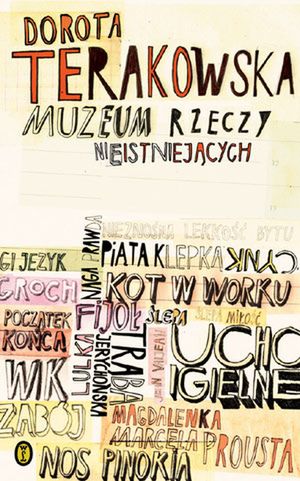 DOROTA
TERAKOWSKA
MUZEUM RZECZY
NIEISTNIEJĄCYCH
NIEZNOŚNA LEKKOŚĆ BYTU
NAGA PRAWDA
PIĄTA KLEPKA
CYNK
GI JĘZYK
GROCH
KOT W WORKU
POCZĄTEK
KOŃCA
FIJOŁ
ŚLEPA
ŚLEPA MIŁOŚĆ
LULKA
TRĄBA
JERYCHOŃSKA
JEAN VALJEAN
UCHO
IGIELNE
WIK
ZABÓJ
MAGDALENKA
MARCELA PROUSTA
NOS PINOKIA